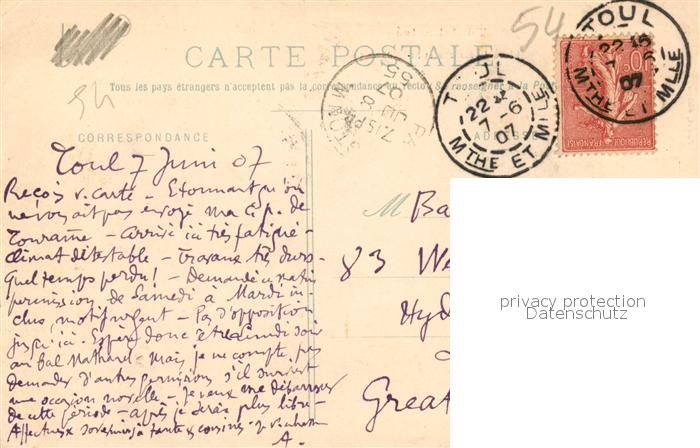 54
CARTE POSTALE
Tous les pays étrangers n'acceptent pas la correspondance au recto (Se renseigner à la Poste
54
CORRESPONDANCE
TOUL
22
7-6
07
MTHE ET MLLE
TOUL
22
07
MTHE ET MLLE
7.15 PM
JU 8
07
10c
REPUBLIQUE FRANÇAISE
Toul 7 Juin 07
Reçois v. carte - Etonnant qu'on
ne vous ait pas envoyé ma c. p. de
Touraine - arrivé ici très fatigué -
climat détestable - Travaux très durs -
Quel temps perdu! - Demandé ce matin
permission de Samedi à Mardi in-
clus, motif urgent - Pas d'opposition
jusqu'ici. Espère donc être Lundi soir
au bal Mathurel - Mais je ne compte pas
demander d'autres permissions s'il survient
une occasion nouvelle - Je veux me débarrasser
de cette période - après je serai plus libre
Affectueux à tante & cousines
A.
M Ba
83 We
Hyd
Great
privacy protection
Datenschutz